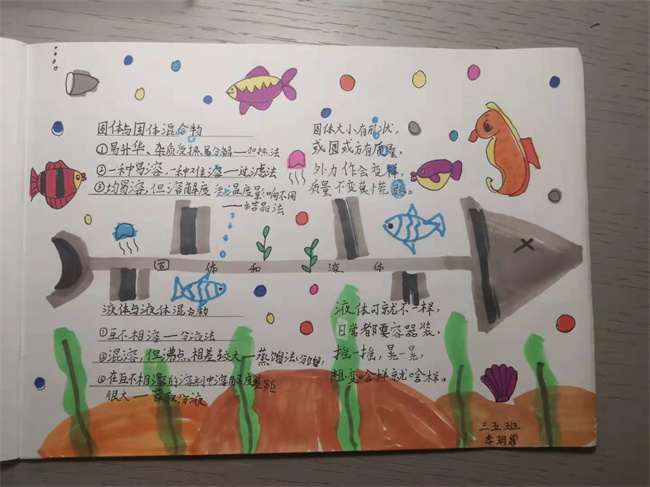 固体与固体混合物
①易升华、杂质受热易分解—加热法
②一种易溶,一种难溶—过滤法
③均易溶,但溶解度受温度影响不同
—结晶法
固体大小有形状,
或圆或方有质量。
外力作会变样,
质量不变莫慌
固体和液体
液体与液体混合物
①互不相溶—分液法
②混溶,但沸点相差较大—蒸馏法
③在互不相溶的溶剂中溶解度差距
很大—萃取分液
液体可就不一样,
日常都要容器装,
摇一摇,晃一晃,
想变啥样就啥样。
三五班
李玥